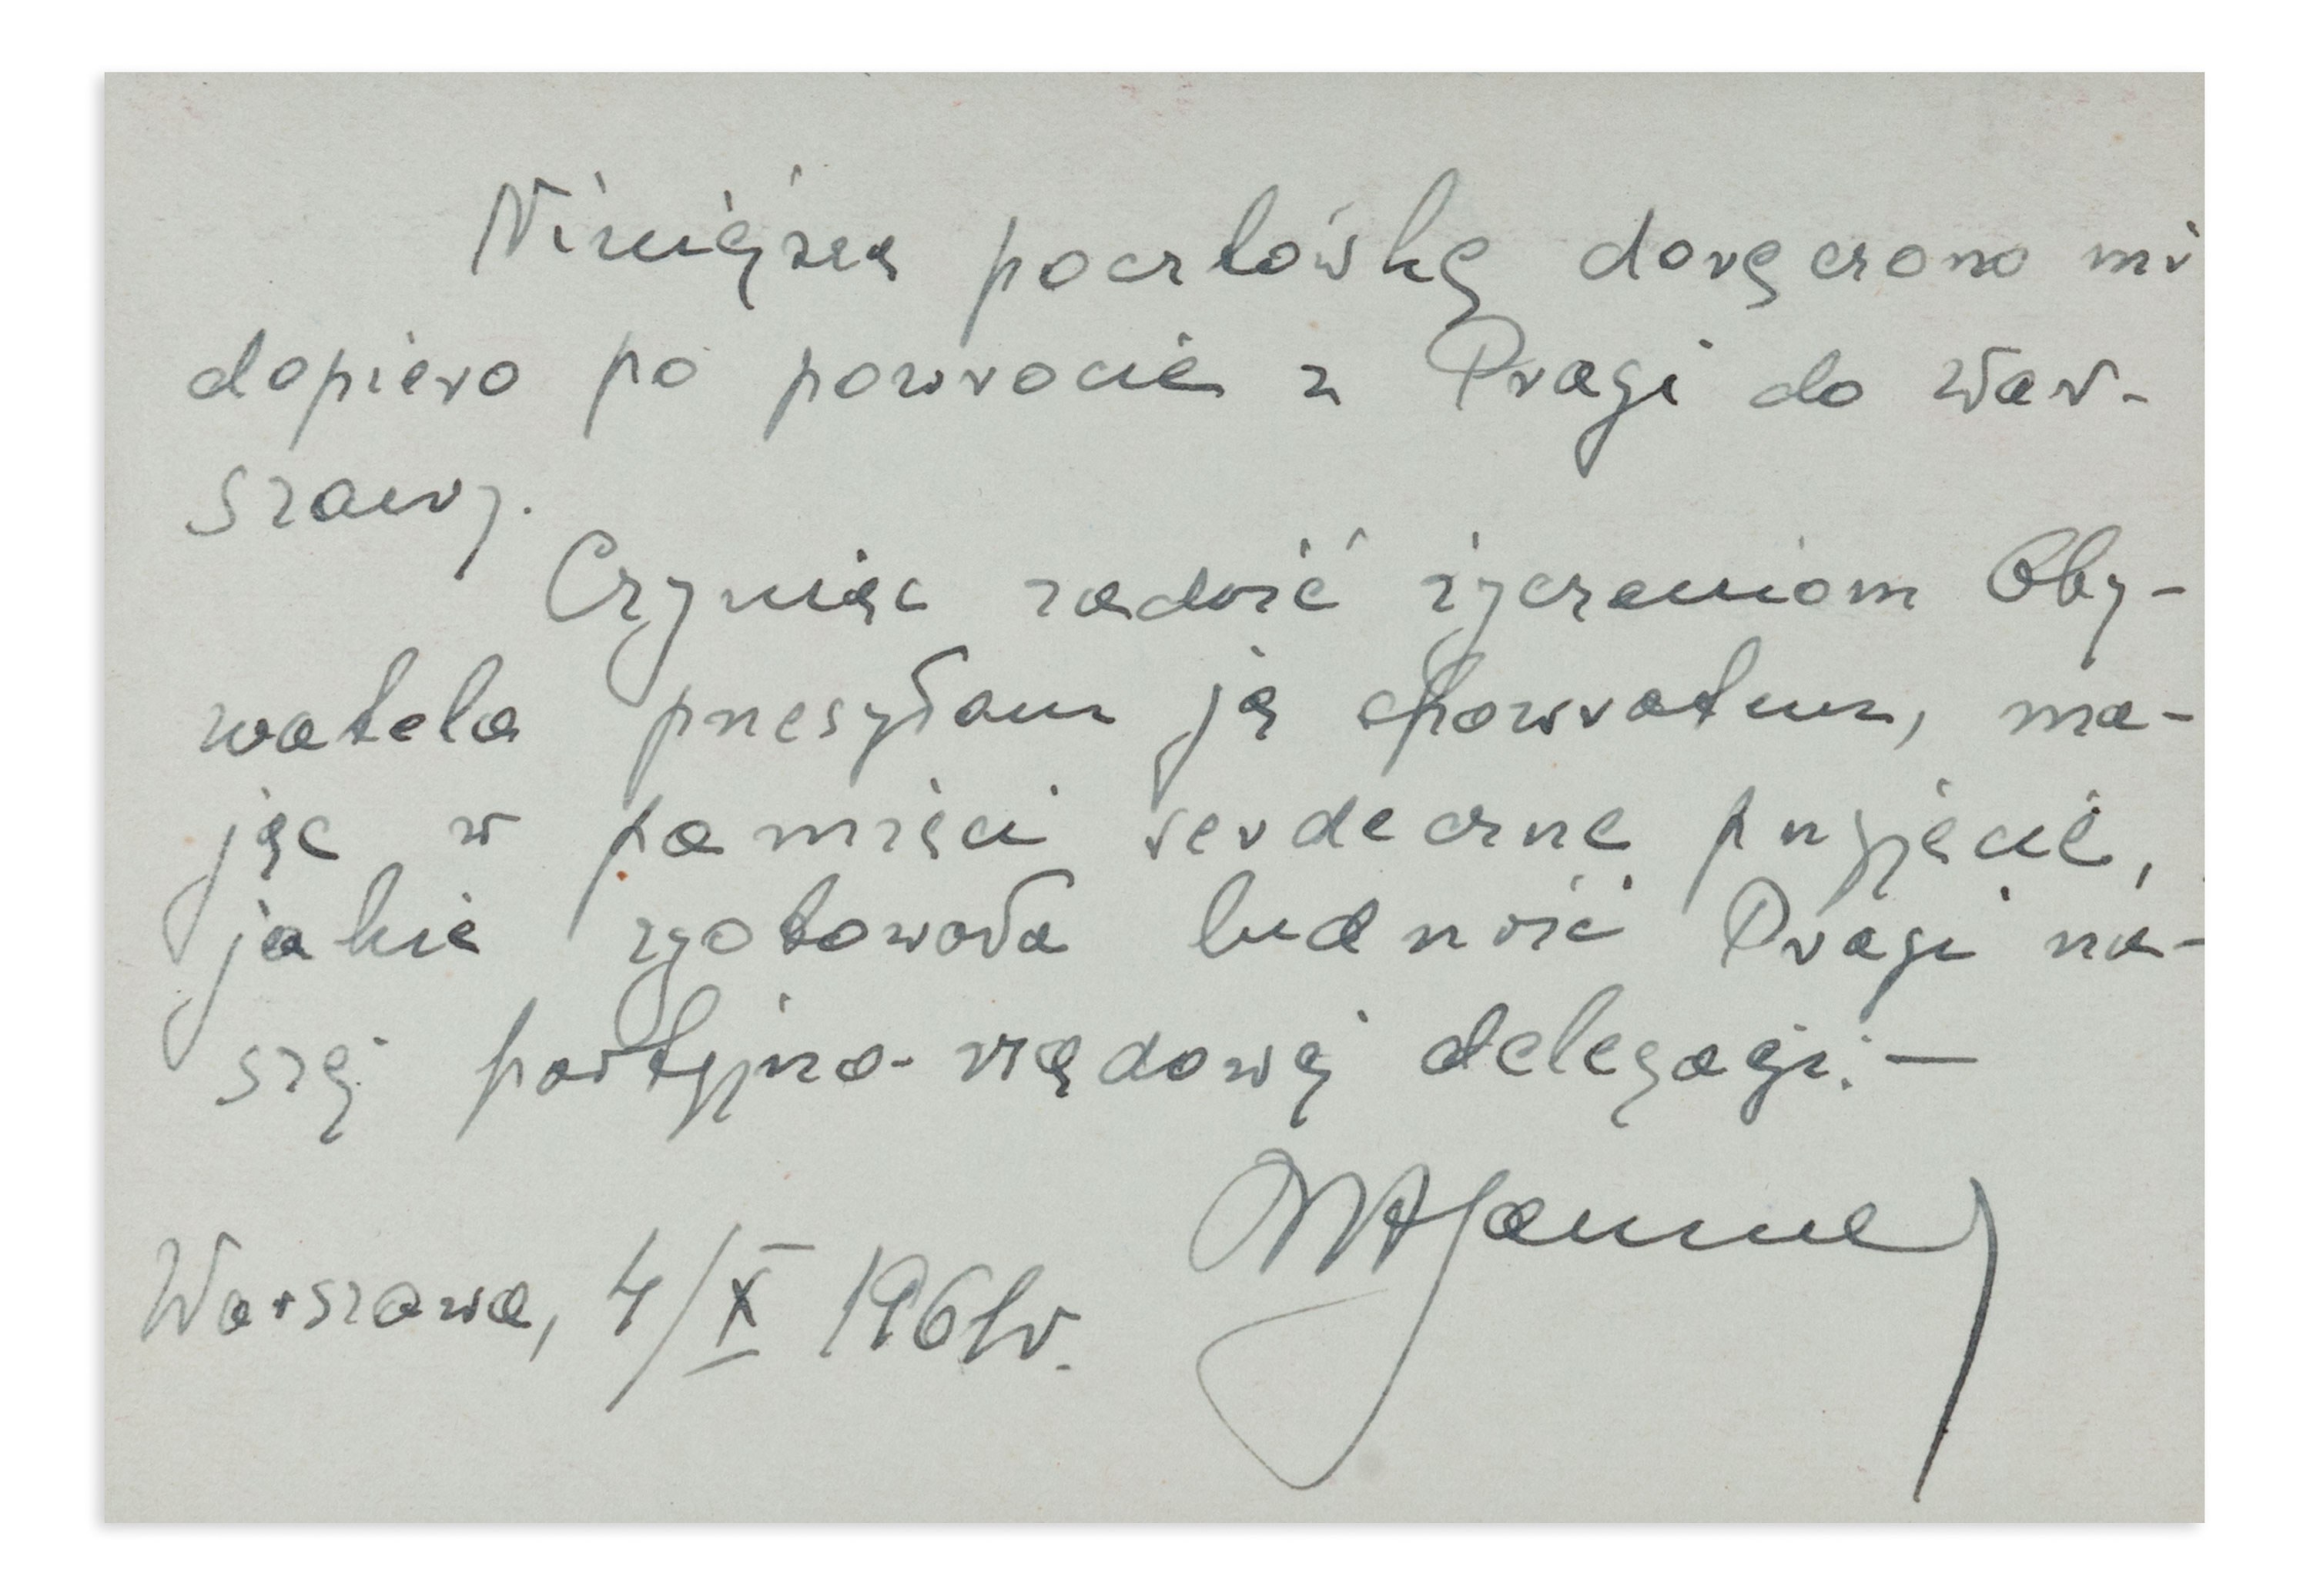 Niniejszą pocztówkę doręczono mi
dopiero po powrocie z Pragi do War-
szawy.
Czyniąc zadość życzeniom Oby-
watela przesyłam ją z powrotem, ma-
jąc w pamięci serdeczne przyjęcie,
jakie zgotowała ludność Pragi na-
szej partyjno-rządowej delegacji. —
Warszawa, 4/X 1961r.